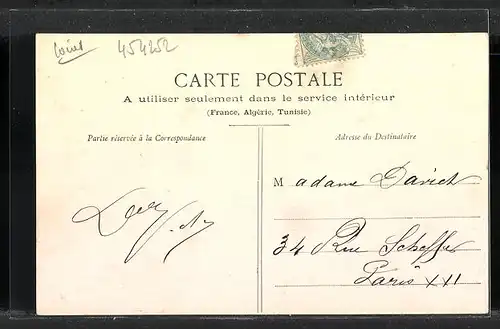 Loiret 454252
CARTE POSTALE
A utiliser seulement dans le service intérieur
(France, Algérie, Tunisie)
Partie réservée à la Correspondance
Adresse du Destinataire
Madame Davich
34 Rue Scheffer
Paris XVI